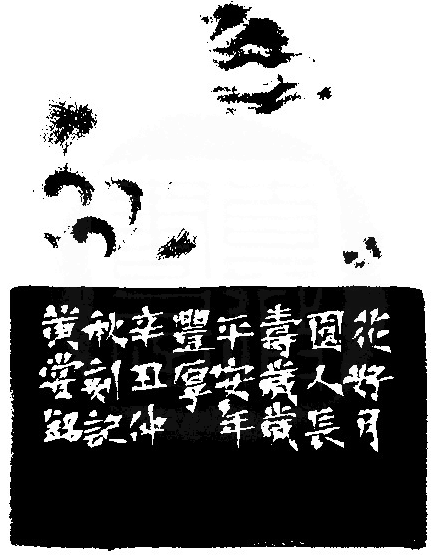 花好月
圓人長
壽歲歲
平安年
豐厚
辛丑仲
秋刻記
黃嘗銘